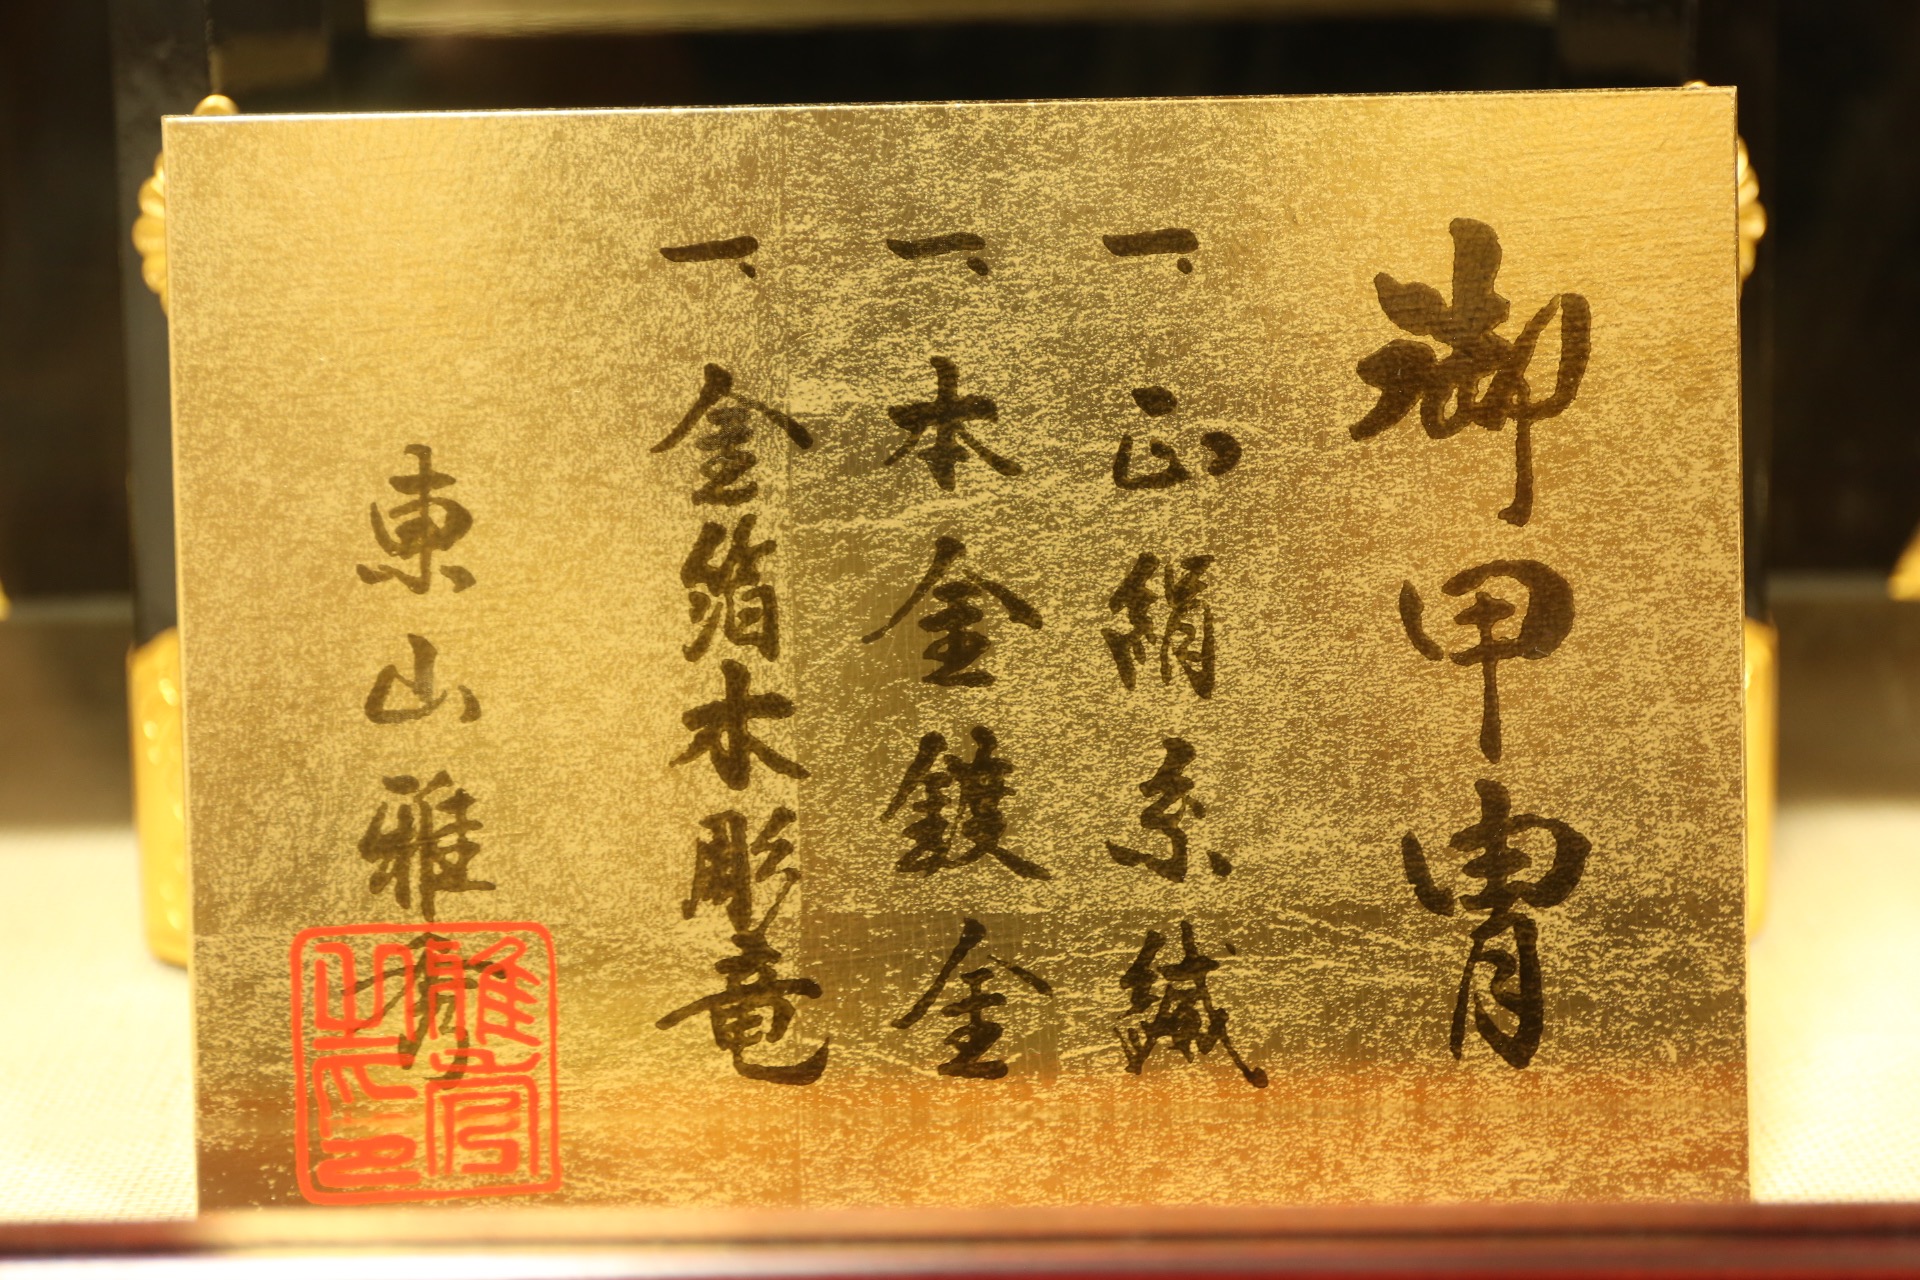 御甲冑
一、正絹糸縅
一、本金鍍金
一、金箔木彫竜
東山雅秀